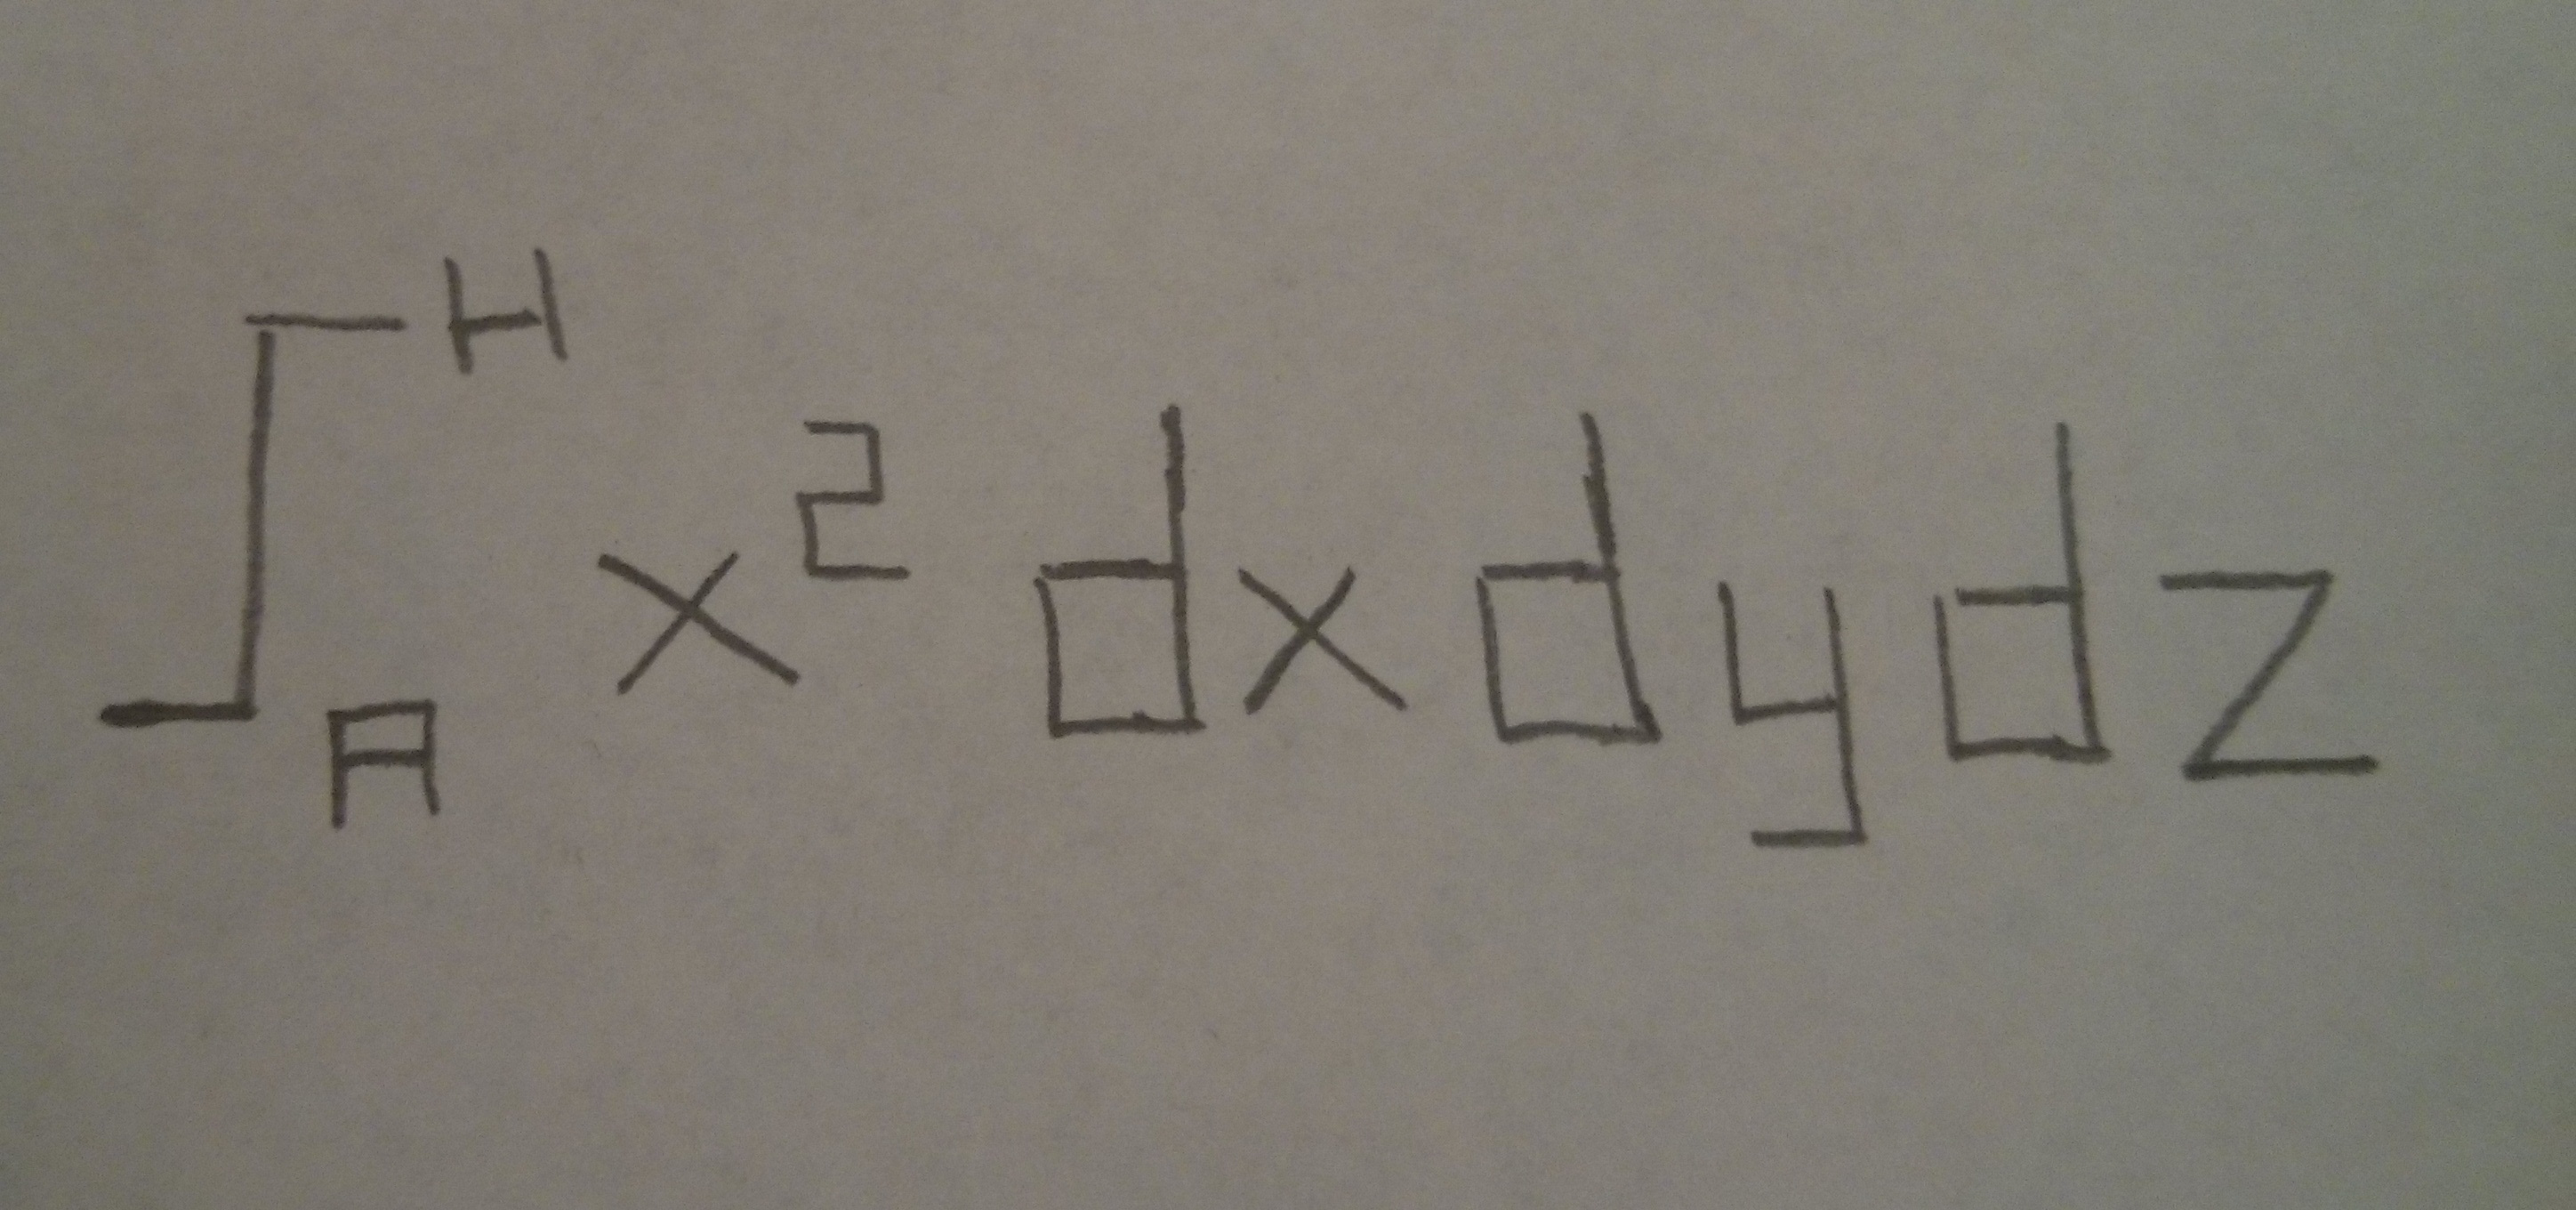 ∫_A^H x² dx dy dz